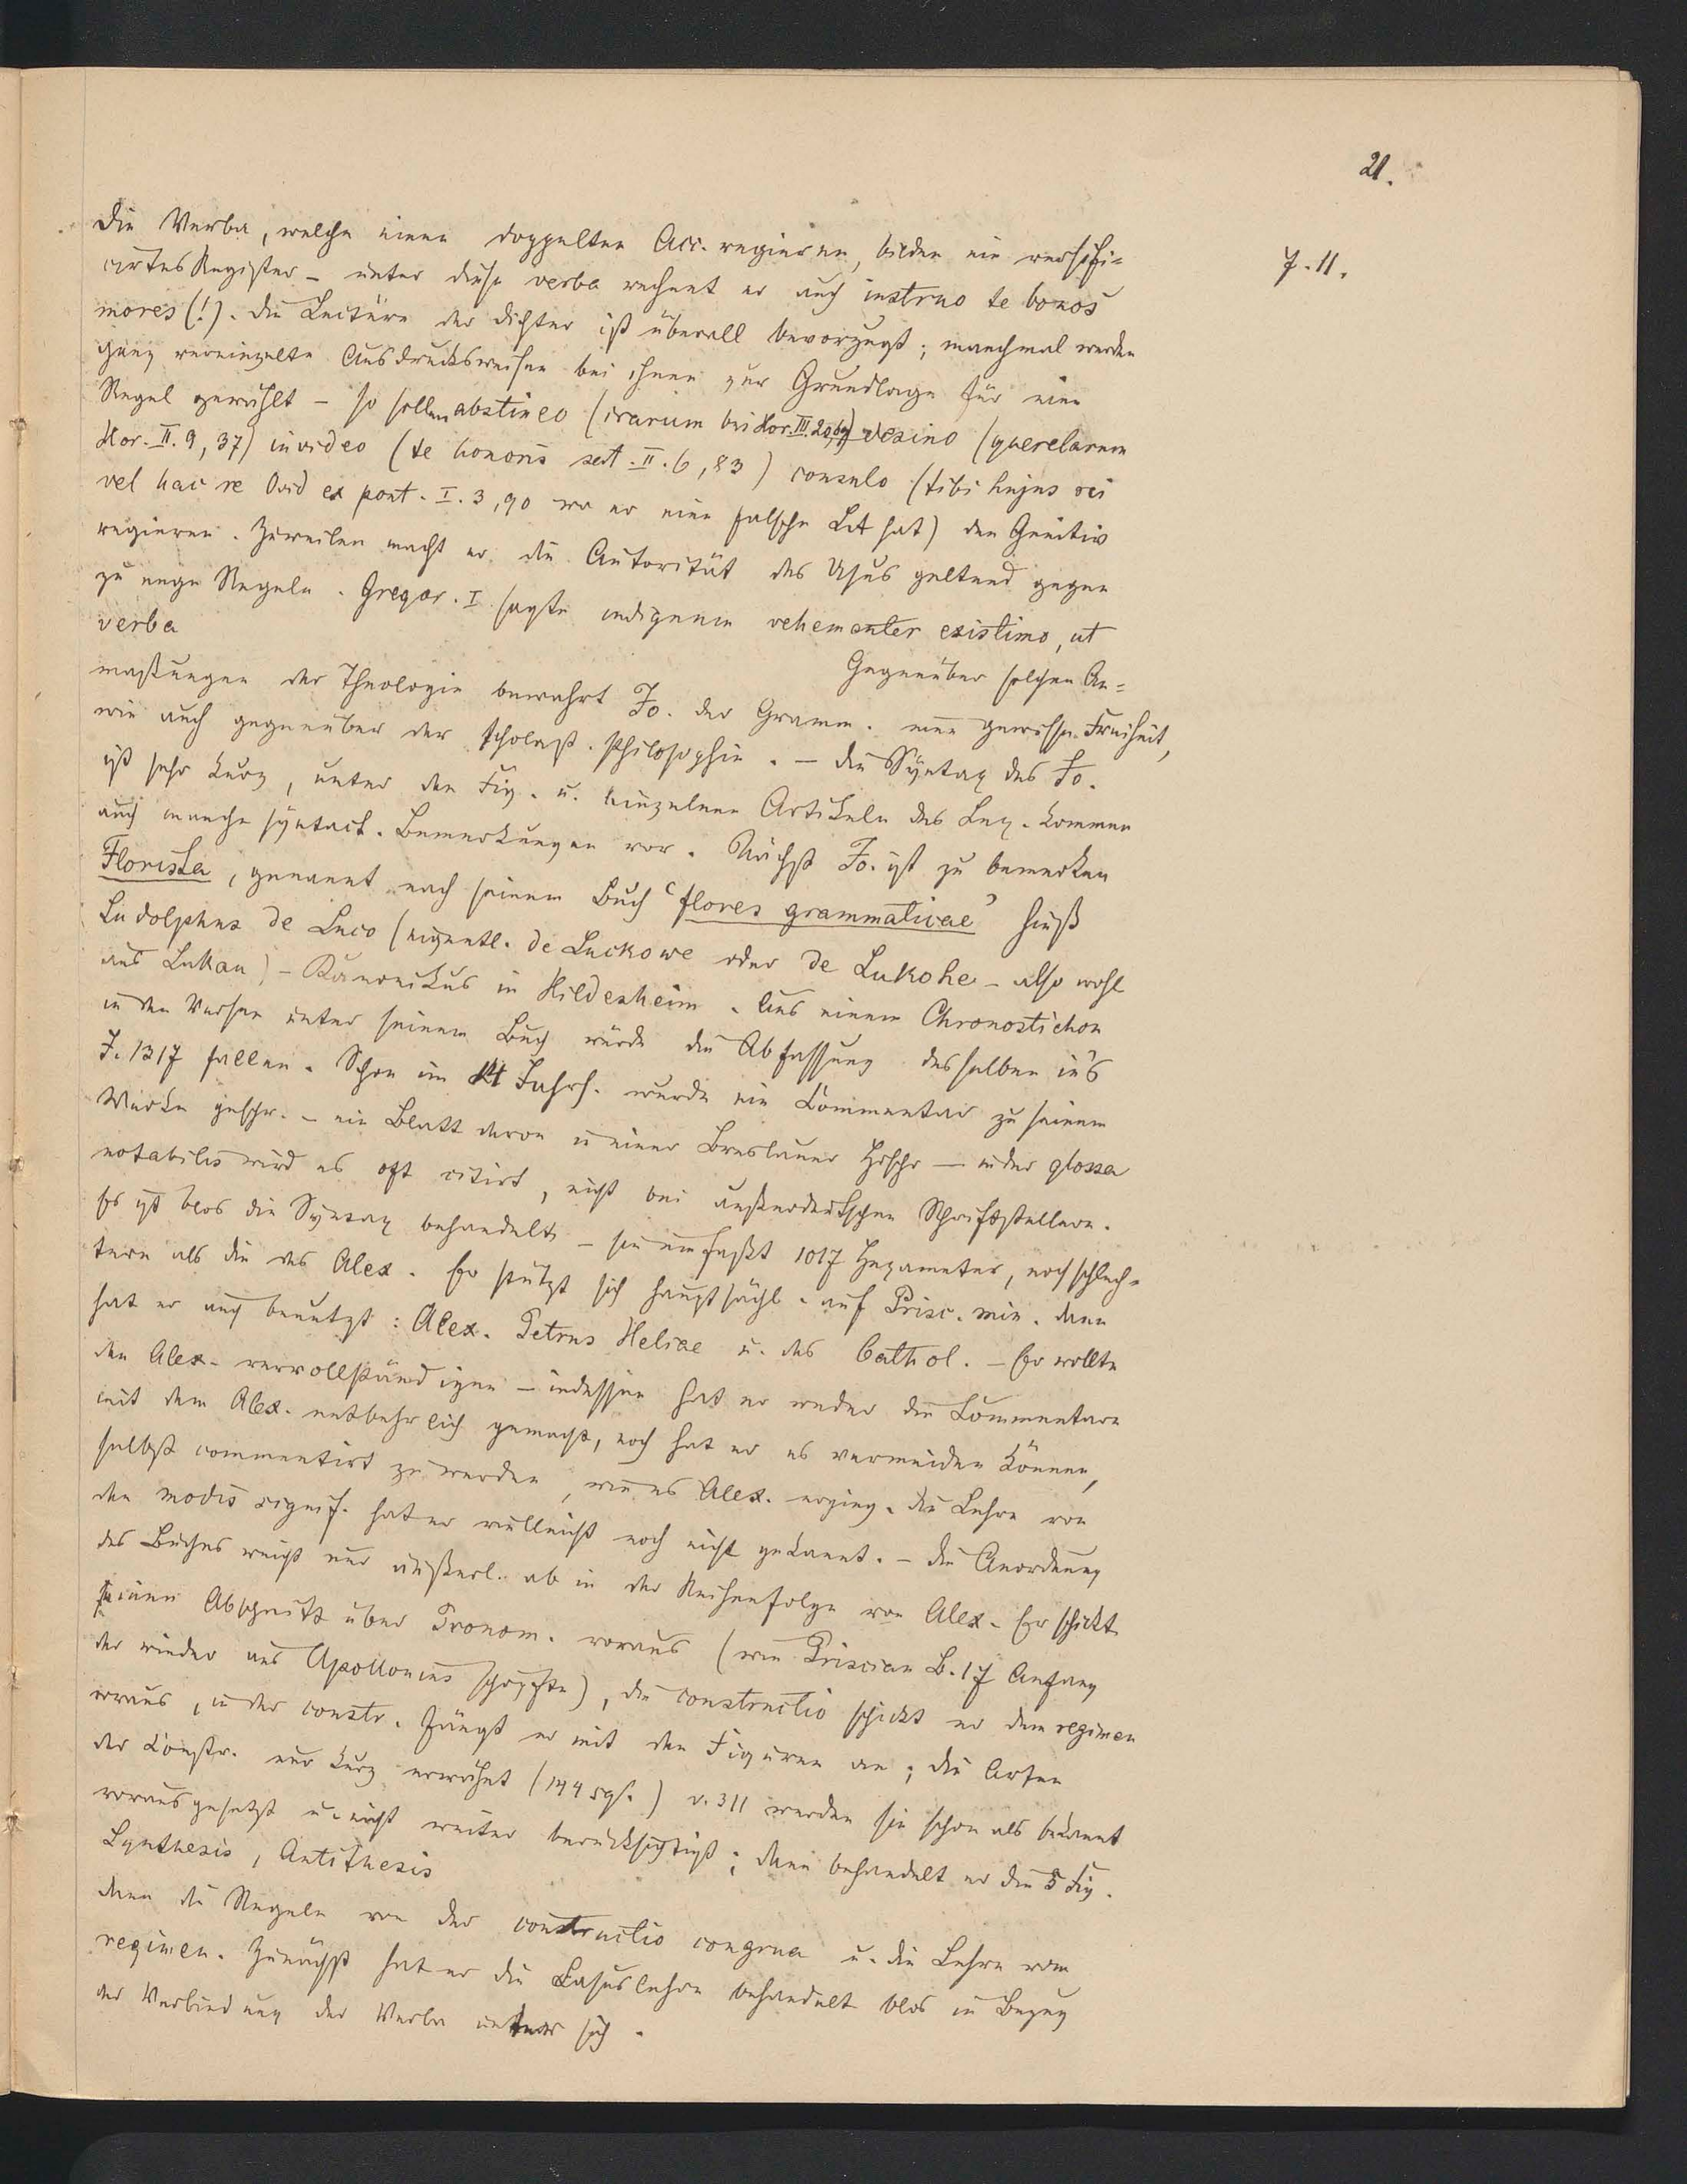 21.
7. 11.
Die Verba, welche einen doppelten Acc. regieren, bilden ein versifi=
cirtes Register – unter diese verba rechnet er auch instruo te bonos
mores (!). Die Lectüre der Dichter ist überall bevorzugt; manchmal werden
ganz vereinzelte Ausdrucksweisen bei ihnen zur Grundlage für eine
Regel gewählt – so sollen abstineo (irarum bei Hor. III. 27, 69) desino (querelarum
Hor. II. 9, 37) invideo (te honoris sat. II. 6, 83) consulo (tibi hujus rei
vel hac re Ovid ex pont. I. 3, 90 wo er eine falsche Lat hat) den Genitiv
regieren. Zuweilen macht er die Autorität des Usus geltend gegen
zu enge Regeln. Gregor. I sagte indignum vehementer existimo, ut
verba
Gegenüber solchen An=
maßungen der Theologie bewahrt Jo. der Gramm. eine gewisse Freiheit,
wie auch gegenüber der scholast. Philosophie. – Die Syntax des Jo.
ist sehr kurz, unter den Fig. u. einzelnen Artikeln des Lex. kommen
auch manche syntact. Bemerkungen vor. Nächst Jo. ist zu bemerken
Florista, genannt nach seinem Buch 'flores grammaticae' hieß
Ludolphus de Luco (eigentl. de Luckowe oder de Lukohe – also wohl
aus Lukau) – Kanonikus in Hildesheim. Aus einem Chronostichon
in den Versen unter seinem Buch würde die Abfassung desselben in's
J. 1317 fallen. Schon im 14 Jahrh. wurde ein Commentar zu seinem
Werke geschr. – ein Blatt davon in einer Breslauer Hdschr – in der glossa
notabilis wird es oft citirt, nicht bei außerdeutschen Schriftstellern.
Es ist blos die Syntax behandelt – sie umfaßt 1017 Hexameter, noch schlech=
tere als die des Alex. Er stützt sich hauptsächl. auf Prisc. min. dann
hat er auch benutzt: Alex. Petrus Heliae u. das Cathol. – Er wollte
den Alex. vervollständigen – indessen hat er weder die Commentare
mit dem Alex. entbehrlich gemacht, noch hat er es vermeiden können,
selbst commentirt zu werden, wie es Alex. erging. Die Lehre von
den modis signif. hat er vielleicht noch nicht gekannt. – Die Anordnung
des Buches weicht nur äußerl. ab in der Reihenfolge von Alex. Er schickt
einen Abschnitt über Pronom. voraus (wie Priscian B. 17 Anfang
der wieder aus Apollonius schöpfte), die constructio schickt er dem regimen
voraus, in der constr. fängt er mit den Figuren an; die Arten
der Constr. nur kurz erwähnt (144 sqs.) v. 311 werden sie schon als bekannt
vorausgesetzt u. nicht weiter berücksichtigt; dann behandelt er die 5 Fig.
Synthesis, Antithesis
dann die Regeln von der constructio congrua u. die Lehre vom
regimen. Zunächst hat er die Casuslehre behandelt blos in Bezug
der Verbindung der Verba unter sich.